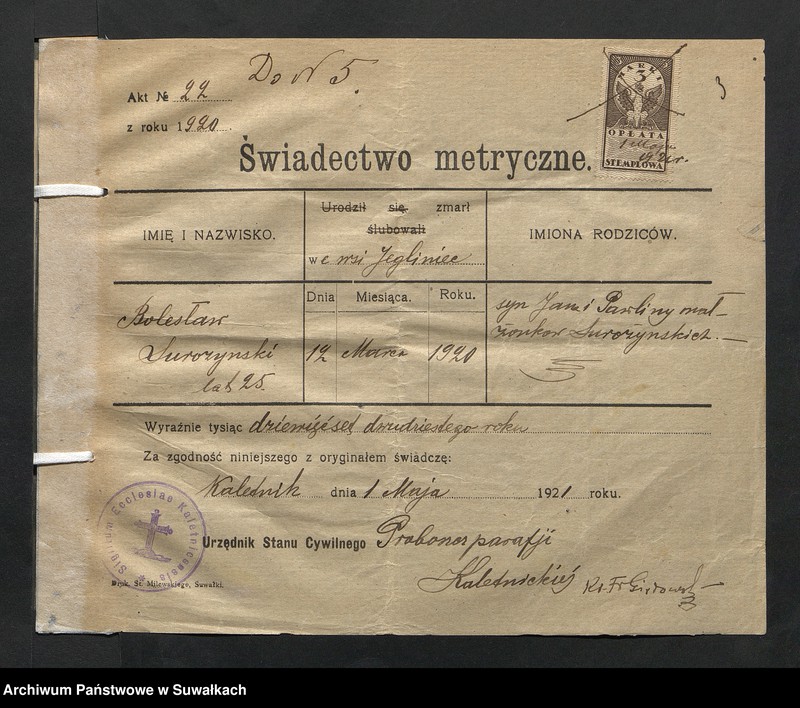 Do N 5.
3
Akt № 22
z roku 1920.
MARKI
3
OPŁATA
1 Maja
1921 r.
STEMPLOWA
Świadectwo metryczne.
IMIĘ I NAZWISKO.
Urodził się zmarł
ślubowali
we wsi Jegliniec
IMIONA RODZICÓW.
Dnia Miesiąca. Roku.
Bolesław
Surożynski
lat 25.
12 Marca 1920
syn Jana i Pawliny mał-
żonków Surożynskich.
Wyraźnie tysiąc dziewięćset dwudziestego roku
Za zgodność niniejszego z oryginałem świadczę:
Kaletnik dnia 1 Maja 1921 roku.
Sigillum Ecclesiae Kaletnicensis
Urzędnik Stanu Cywilnego Proboszcz parafji
Kaletnickiéj Ks. Fr.
Druk. St. Milewskiego, Suwałki.
Archiwum Państwowe w Suwałkach